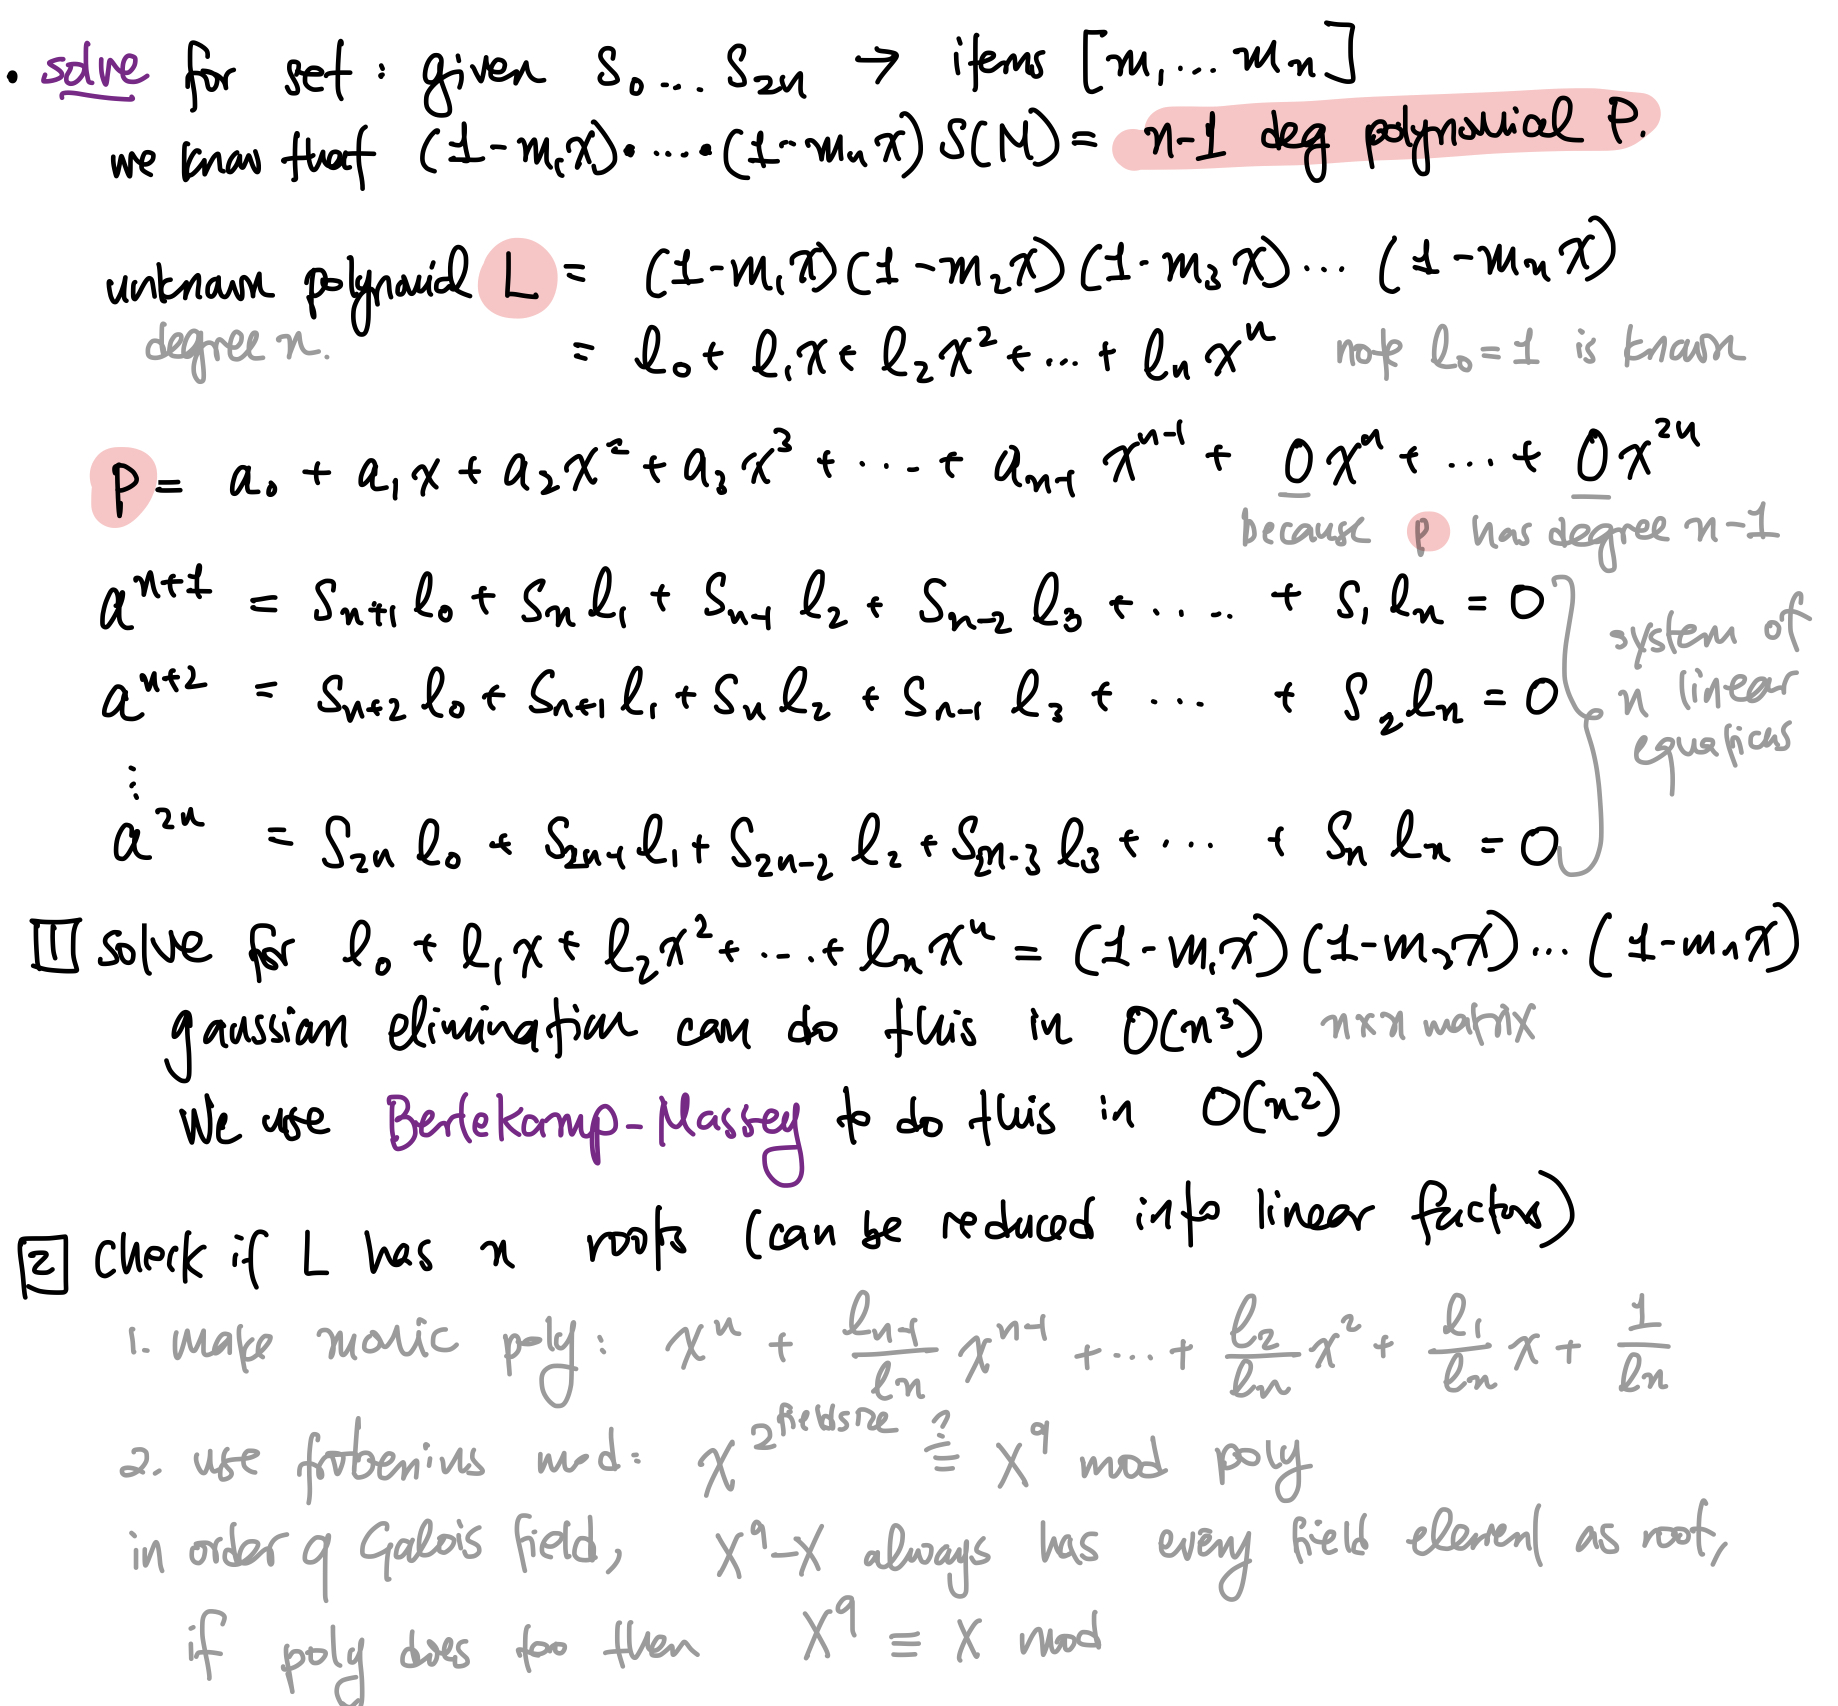 • solve for set : given S₀ ... S₂ₙ → items [m₁ ... mₙ]
we know that (1-m₁x)•....•(1-mₙx) S(M) = n-1 deg polynomial P.
unknown polynomial L = (1-m₁x)(1-m₂x)(1-m₃x)... (1-mₙx)
degree n.
= l₀ + l₁x + l₂x² + ... + lₙxⁿ note l₀=1 is known
P = a₀ + a₁x + a₂x² + a₃x³ + ... + aₙ₋₁ xⁿ⁻¹ + 0xⁿ + ... + 0x²ⁿ
because P has degree n-1
aⁿ⁺¹ = Sₙ₊₁l₀ + Sₙl₁ + Sₙ₋₁l₂ + Sₙ₋₂l₃ + .... + S₁lₙ = 0
aⁿ⁺² = Sₙ₊₂l₀ + Sₙ₊₁l₁ + Sₙl₂ + Sₙ₋₁l₃ + ... + S₂lₙ = 0
⋮
a²ⁿ = S₂ₙl₀ + S₂ₙ₋₁l₁ + S₂ₙ₋₂l₂ + S₂ₙ₋₃l₃ + ... + Sₙlₙ = 0
system of
n linear
equations
1 solve for l₀ + l₁x + l₂x² + ... + lₙxⁿ = (1-m₁x)(1-m₂x)...(1-mₙx)
gaussian elimination can do this in O(n³) n×n matrix
We use Berlekamp-Massey to do this in O(n²)
2 check if L has n roots (can be reduced into linear factors)
1. make monic poly: xⁿ + lₙ₋₁/lₙ xⁿ⁻¹ + ... + l₂/lₙ x² + l₁/lₙ x + 1/lₙ
2. use frobenius mod: x^2^fieldsize ≟ x^q mod poly
in order q Galois field, x^q-x always has every field element as root,
if poly does too then x^q ≡ x mod